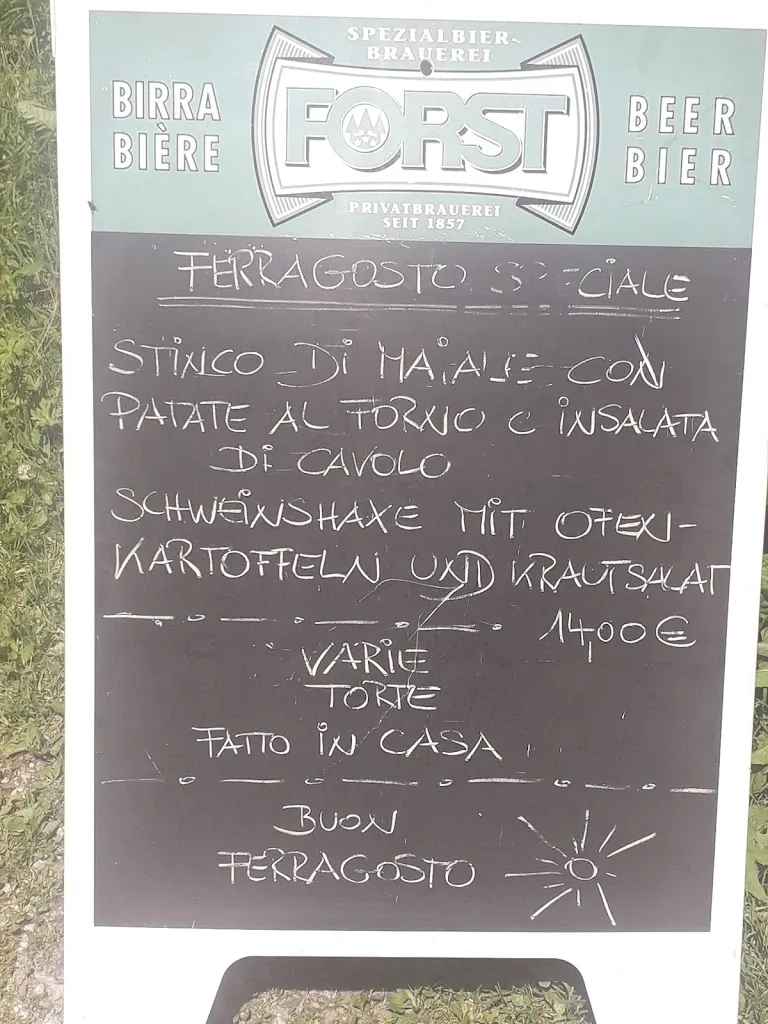 SPEZIALBIER-
BRAUEREI
BIRRA
BIÈRE
FORST
BEER
BIER
PRIVATBRAUEREI
SEIT 1857
FERRAGOSTO SPECIALE
STINCO DI MAIALE CON
PATATE AL FORNO E INSALATA
DI CAVOLO
SCHWEINSHAXE MIT OFEN-
KARTOFFELN UND KRAUTSALAT
14,00 €
VARIE
TORTE
FATTO IN CASA
BUON
FERRAGOSTO